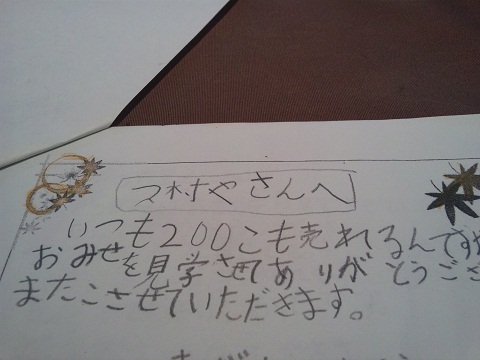 マ村やさんへ
いつも200こも売れてるんですね
おみせを見学させてありがとうござ
またこさせていただきます。